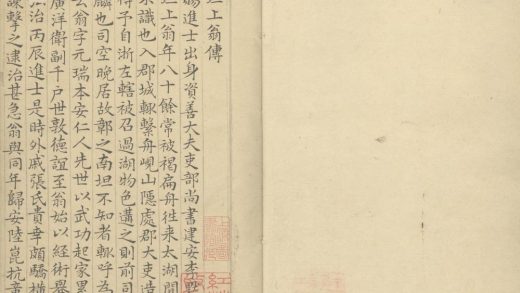 上翁傳
賜進士出身資善大夫吏部尚書建安李默
上翁年八十餘常被褐扁舟徃来太湖間
求識也入郡城輙繫舟峴山隱處郡大吏造
得予自浙左轄被召過湖物色遘之則前司
麟也司空晚居故鄣之南坦不知者輙呼為
云翁字元瑞本安仁人先世以武功起家累
廣洋衛副千戸世敦德誼至翁始以經術舉
治丙辰進士是時外戚張氏貴幸頗驕横
諫擊之逮治甚急翁與同年歸安陸崑抗章